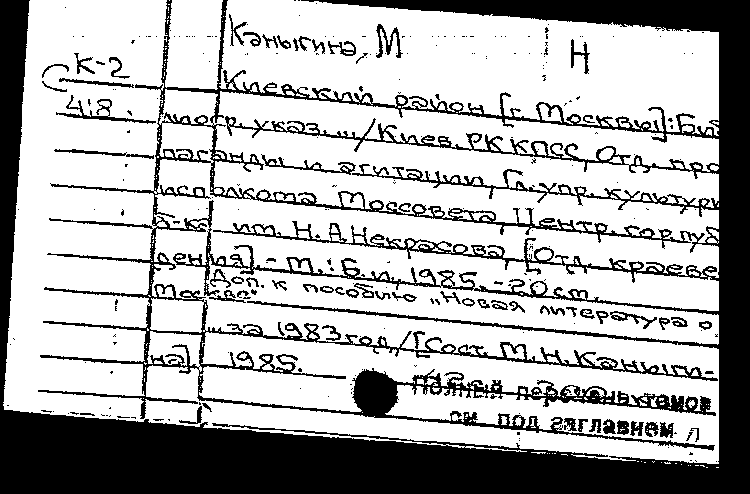 Каныгина, М Н
К-2
4:8
Киевский район [г. Москвы]: Биб
лиогр. указ. ... / Киев. РК КПСС, Отд. про
паганды и агитации, Гл. упр. культуры
исполкома Моссовета, Центр. гор. пуб
б-ка им. Н.А. Некрасова, [Отд. краеве
дения]. - М.: Б.и., 1985. - 20 см.
Доп. к пособию „Новая литература о
Москве"
... за 1983 год / [Сост. М.Н. Каныги-
на]. 1985.
Полный перечень томов
см под заглавием